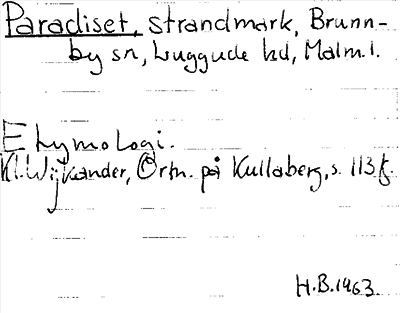 Paradiset, strandmark, Brunn-
by sn, Luggude hd, Malm.l.
Etymologi.
Kl. Wijkander, Ortn. på Kullaberg, s. 113 f.
H.B. 1963.